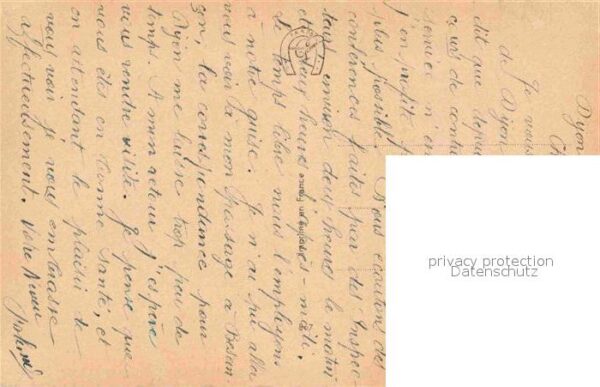 Dijon
Je vous
de Dijon
dit que depuis
cours de
service n'en
j'en profite
plus possible. Nous écoutons des
conférences faites par des Inspec-
teurs environ deux heures le matin
et deux heures l'après-midi.
Le temps libre nous l'employons
à notre guise. Je n'ai pu aller
vous voir à mon passage à Besan-
çon, la correspondance pour
Dijon me laisse trop peu de
temps. A mon retour j'espère
vous rendre visite. Je pense que
vous êtes en bonne santé, et
en attendant le plaisir de
vous voir je vous embrasse
affectueusement. Votre neveu
privacy protection
Datenschutz